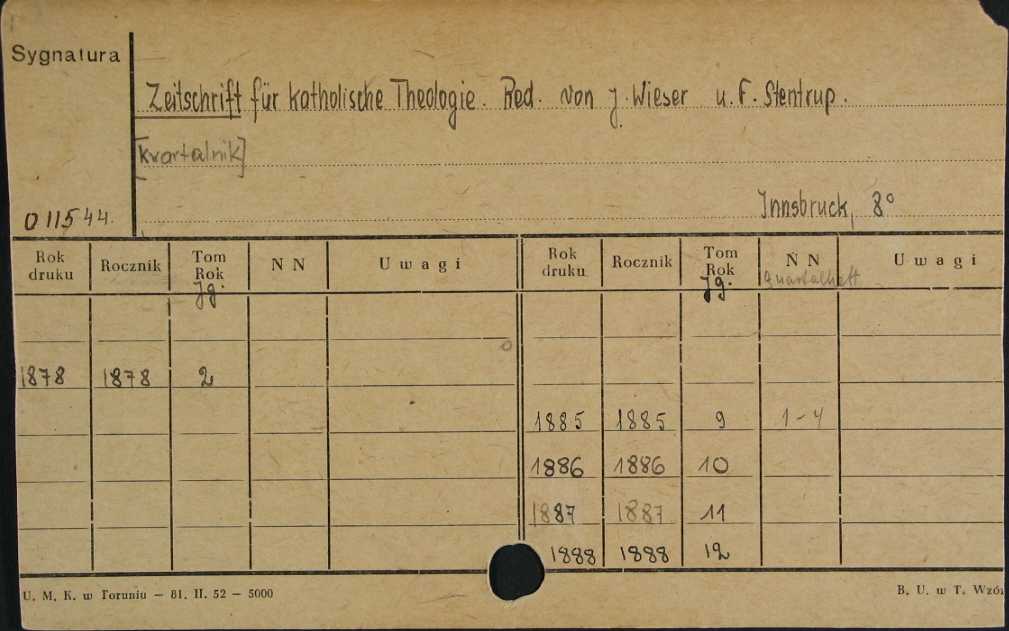 Sygnatura
Zeitschrift für katholische Theologie. Red. von J. Wieser u. F. Stentrup.
[kwartalnik]
011544.
Innsbruck, 8°
Rok druku Rocznik Tom Rok Jg. N N Uwagi Rok druku Rocznik Tom Rok Jg. N N Quartalheft Uwagi
1878 1878 2
1885 1885 9 1-4
1886 1886 10
1887 1887 11
1888 1888 12
U. M. K. w Toruniu — 81. II. 52 — 5000
B. U. w T. Wzó